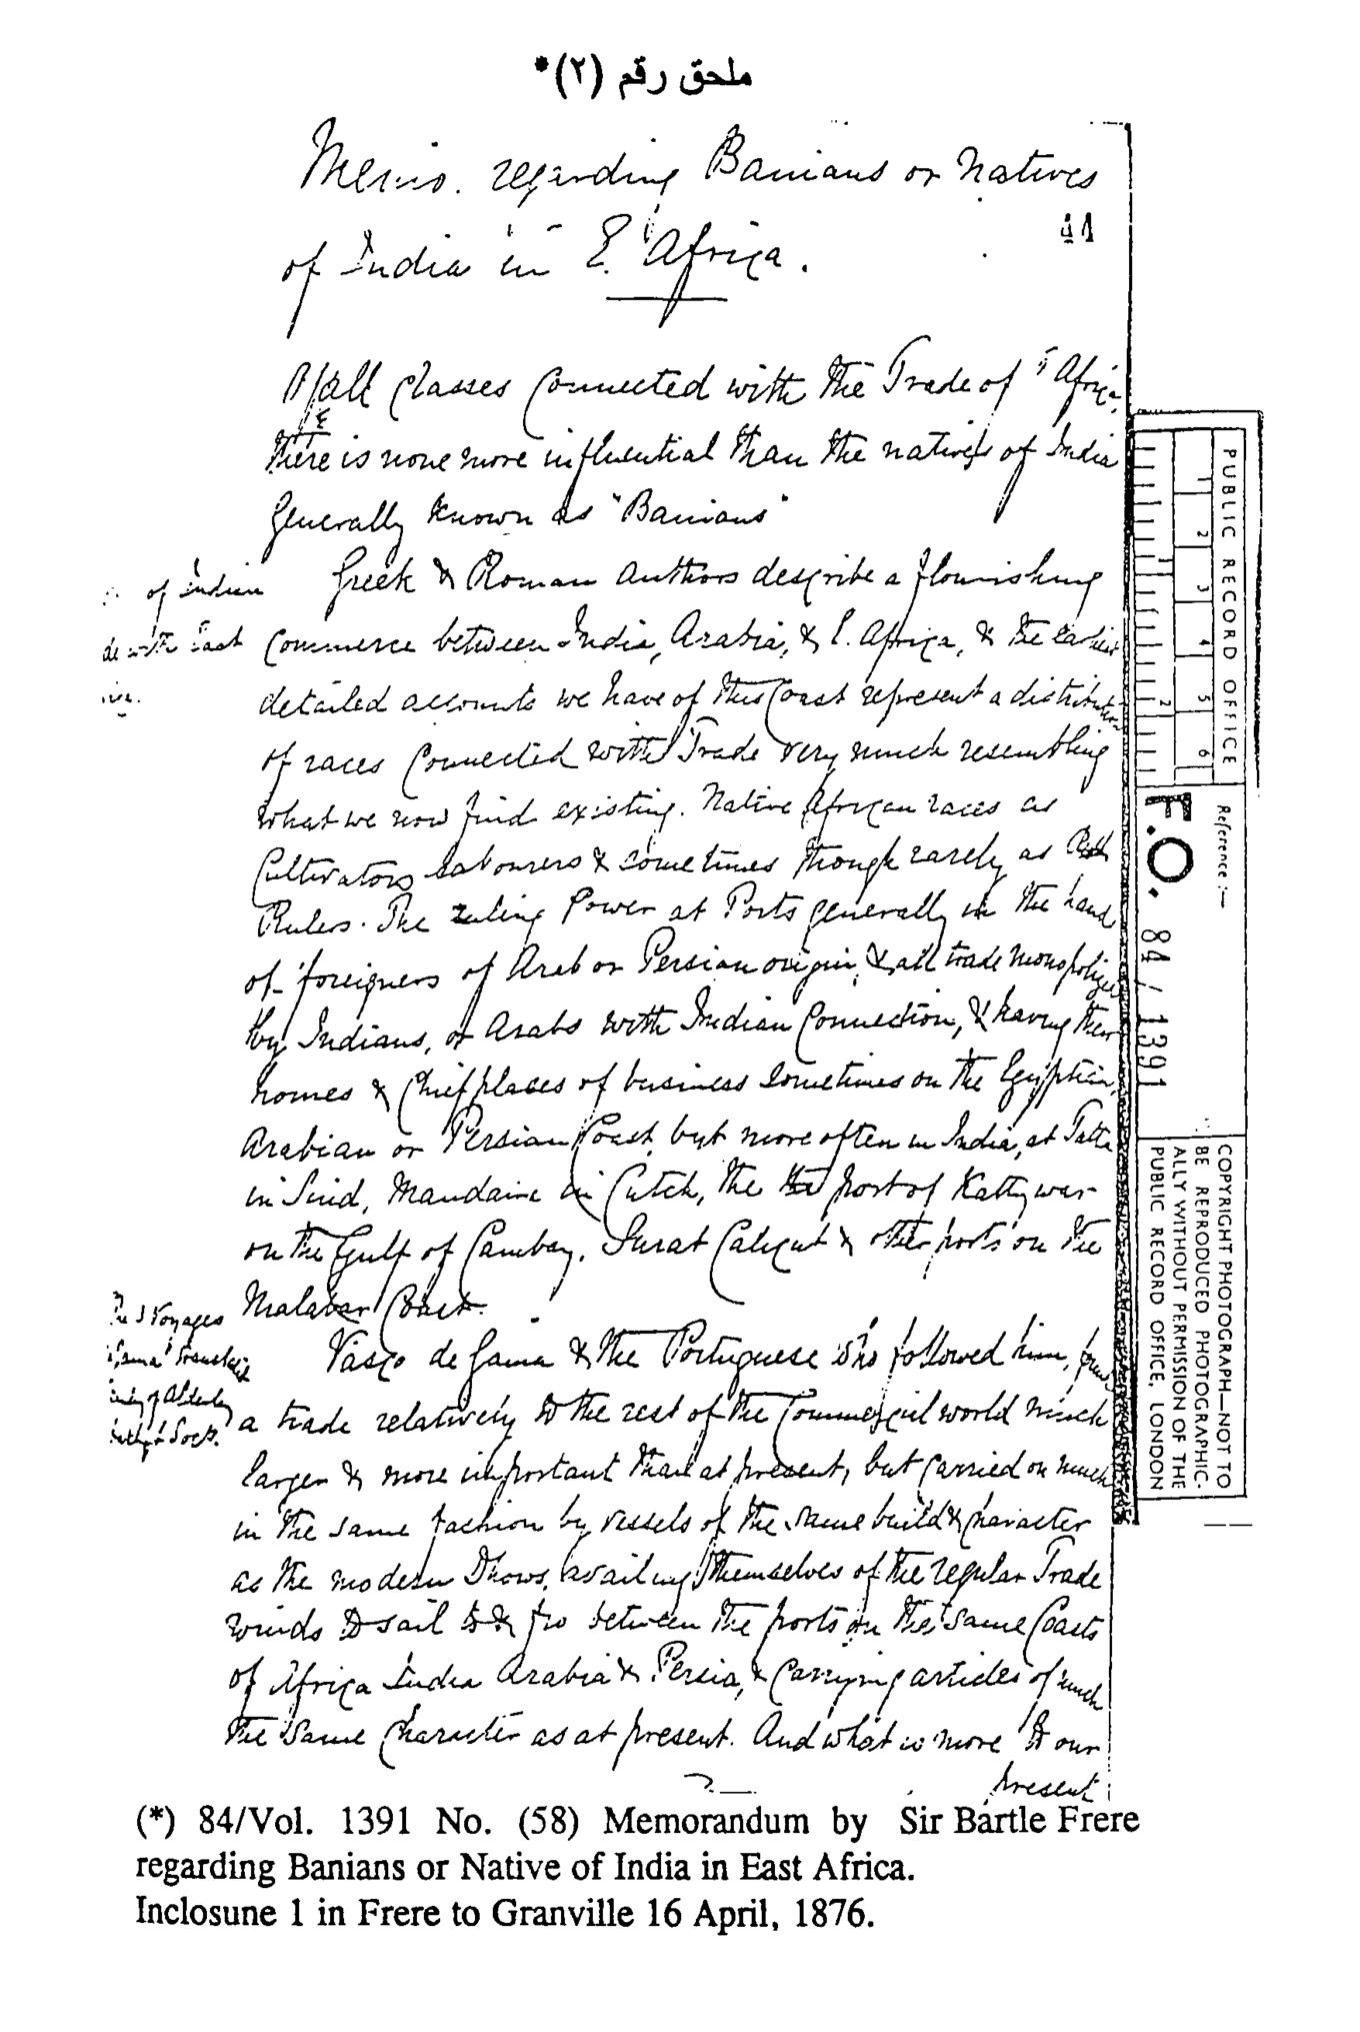 ملحق رقم (٢)*
Memo. regarding Banians or Natives
of India in E. Africa.
44
Of all classes connected with the Trade of E Africa,
there is none more influential than the natives of India
generally known as "Banians"
of Indian
with East
Greek & Roman Authors describe a flourishing
commerce between India, Arabia, & E. Africa, & the earliest
detailed accounts we have of this Coast represent a distribution
of races connected with Trade very much resembling
what we now find existing. Native African races as
Cultivators labourers & sometimes though rarely as
Rulers. The ruling Power at Ports generally in the hands
of foreigners of Arab or Persian origin, & all trade monopolized
by Indians, or Arabs with Indian Connection, & having their
homes & chief places of business sometimes on the Egyptian,
Arabian or Persian Coast, but more often in India, at Tatta
in Sind, Mandavie in Cutch, the port of Kattywar
on the Gulf of Cambay, Surat Calicut & other ports on the
Malabar Coast.
Voyages
of Alderley
Vasco de Gama & the Portuguese who followed him, found
a trade relatively to the rest of the Commercial world much
larger & more important than at present, but carried on much
in the same fashion by vessels of the same build & character
as the modern Dhows, availing themselves of the regular Trade
winds to sail to & fro between the ports on the same Coasts
of Africa India Arabia & Persia, & carrying articles of much
the same character as at present. And what is more to our
present
PUBLIC RECORD OFFICE
1 2 3 4 5 6
1 2
Reference :-
F.O. 84 / 1391
COPYRIGHT PHOTOGRAPH—NOT TO
BE REPRODUCED PHOTOGRAPHIC-
ALLY WITHOUT PERMISSION OF THE
PUBLIC RECORD OFFICE, LONDON
(*) 84/Vol. 1391 No. (58) Memorandum by Sir Bartle Frere
regarding Banians or Native of India in East Africa.
Inclosune 1 in Frere to Granville 16 April, 1876.